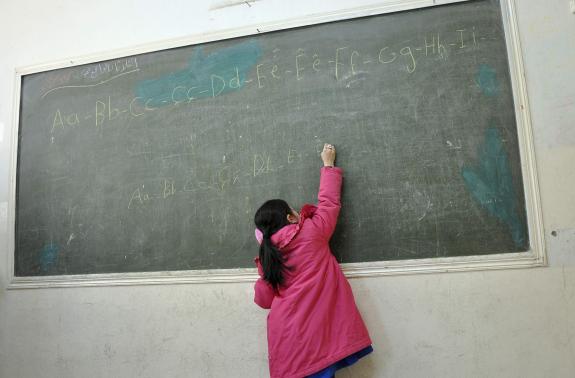 Aa-Bb-Cc-Çç-Dd-Ee-Êê-Ff-Gg-Hh-Ii-
Aa-Bb-Cc-Çç-Dd-E